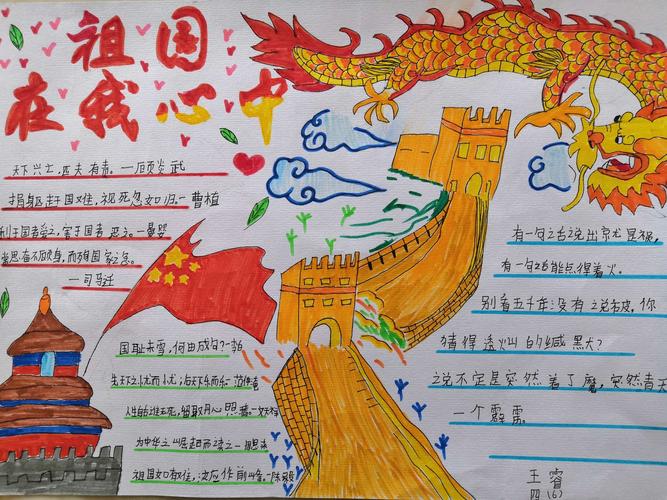 祖国
在我心中
天下兴亡,匹夫有责。一顾炎武
捐躯赴国难,视死忽如归一曹植
利于国者爱之,害于国者恶之一晏婴
常思奋不顾身,而殉国家之急。
一司马迁
国耻未雪,何由成名?一
先天下之忧而忧,后天下乐而乐 范仲淹
人生自古谁无死,留取丹心照
为中华之崛起而读之一
祖国如有难,汝应作前锋一陈毅
有一句话说出就是祸,
有一句话能点得着火。
别看五千年没有说破,你
猜得透火山的缄默?
说不定是突然着了魔,突然青天
一个霹雳。
王睿
四(6)